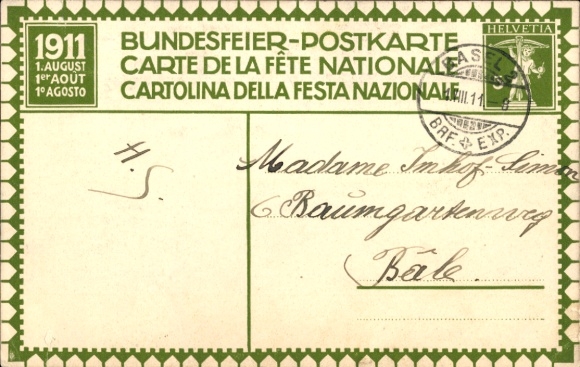 1911
1. AUGUST
1er AOÛT
1º AGOSTO
BUNDESFEIER-POSTKARTE
CARTE DE LA FÊTE NATIONALE
CARTOLINA DELLA FESTA NAZIONALE
HELVETIA
BASEL
BRF. EXP.
H.
S.
Madame Imhof-Simon
6 Baumgartenweg
Bâle.